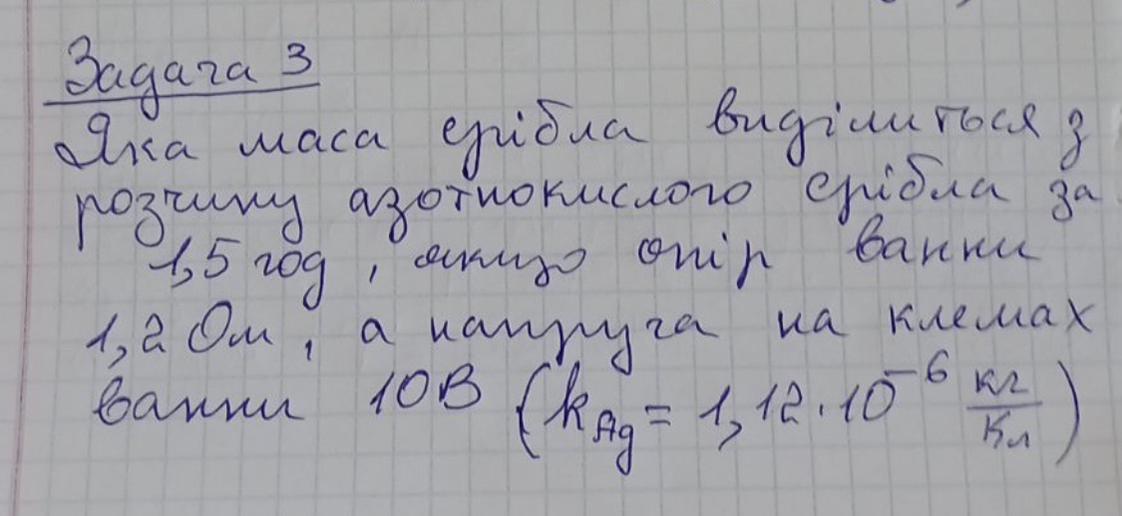 Задача 3
Яка маса срібла виділиться з
розчину азотнокислого срібла за
1,5 год, якщо опір ванни
1,2 Ом, а напруга на клемах
ванни 10В (k_Ag = 1,12·10⁻⁶ кг/Кл)